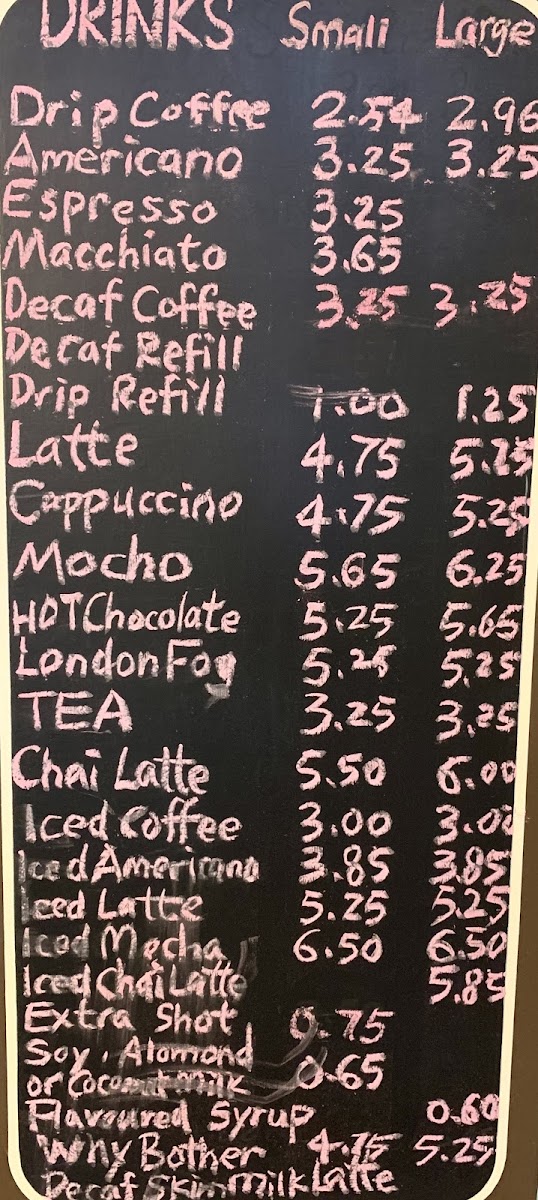 DRINKS Small Large
Drip Coffee 2.54 2.96
Americano 3.25 3.25
Espresso 3.25
Macchiato 3.65
Decaf Coffee 3.25 3.25
Decaf Refill
Drip Refill 1.00 1.25
Latte 4.75 5.25
Cappuccino 4.75 5.25
Mocho 5.65 6.25
HOT Chocolate 5.25 5.65
London Fog 5.25 5.25
TEA 3.25 3.25
Chai Latte 5.50 6.00
Iced Coffee 3.00 3.00
Iced Americano 3.85 3.85
Iced Latte 5.25 5.25
Iced Mocha 6.50 6.50
Iced Chai Latte 5.85
Extra Shot 0.75
Soy, Alamond
or Coconut Milk 0.65
Flavoured Syrup 0.60
Why Bother 4.75 5.25
Decaf Skim Milk Latte